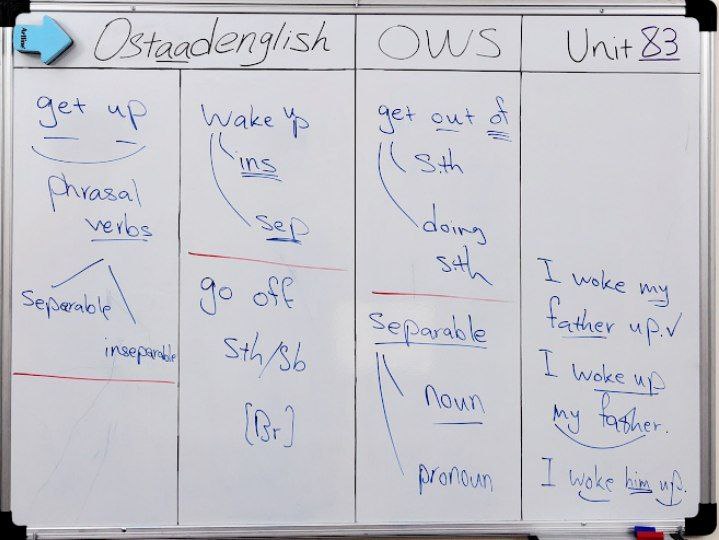 Artline
Ostaadenglish
OWS
Unit 83
get up
phrasal
verbs
Seperable
inseparable
Wake up
ins
sep
go off
Sth/Sb
[Br]
get out of
S.th
doing
s.th
Separable
noun
pronoun
I woke my
father up.✓
I woke up
my father.
I woke him up.